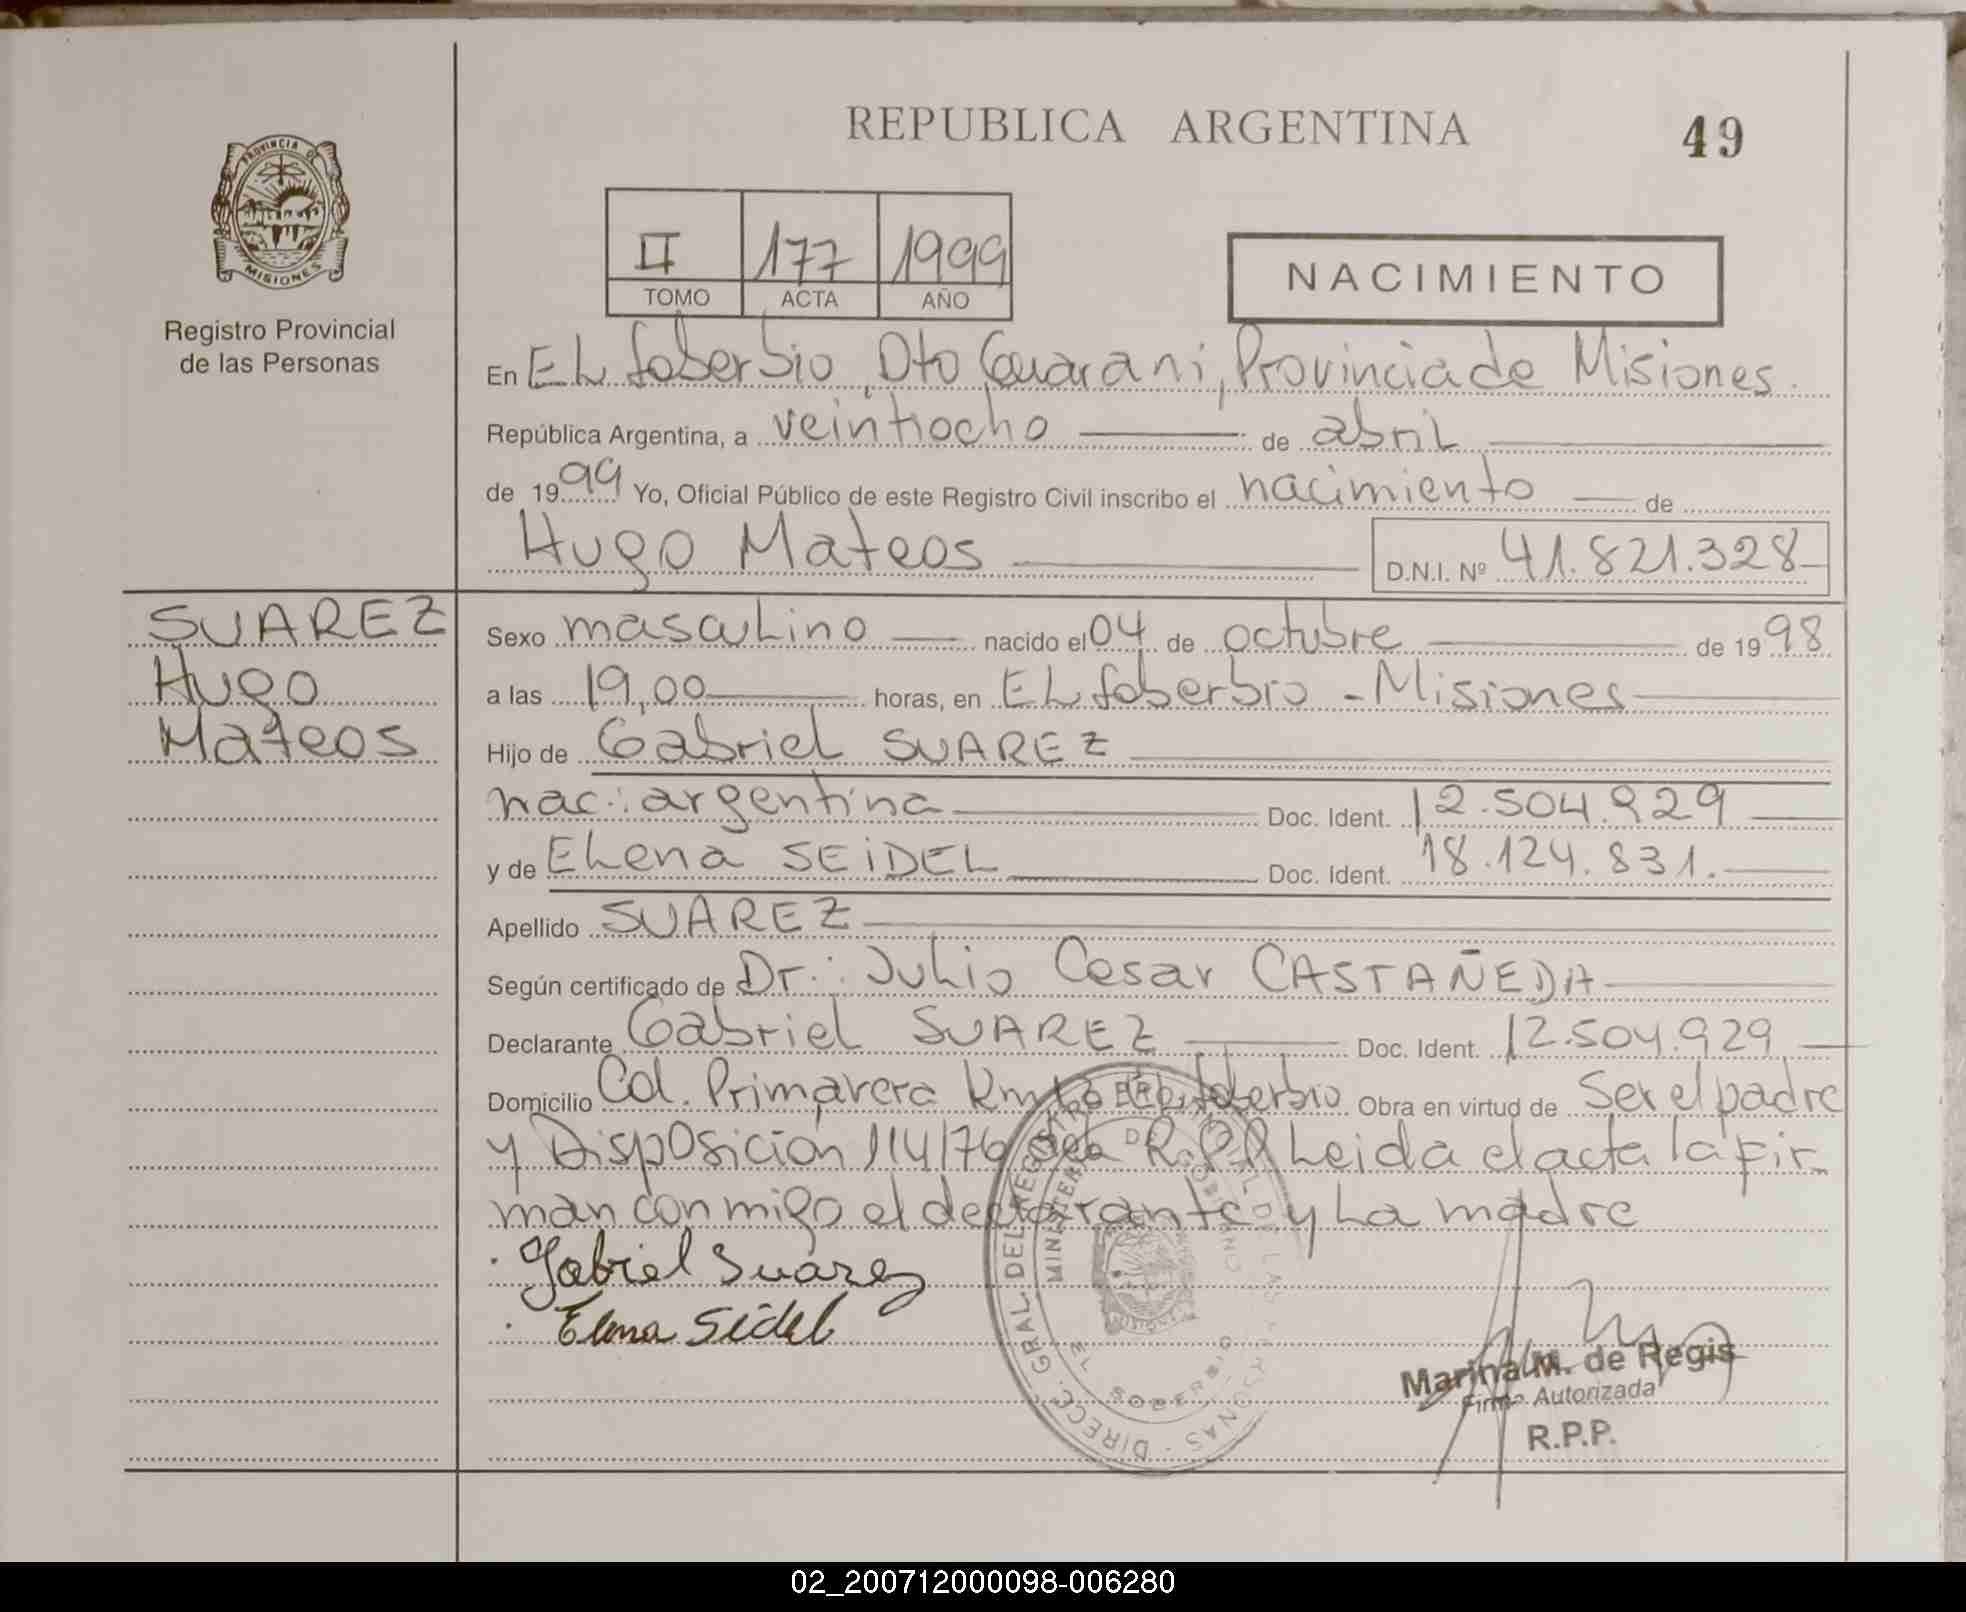 REPUBLICA ARGENTINA
49
PROVINCIA DE
MISIONES
Registro Provincial
de las Personas
II 177 1999
TOMO ACTA AÑO
NACIMIENTO
En EL Soberbio, Dto Guarani, Provincia de Misiones.
República Argentina, a veintiocho de abril
de 1999 Yo, Oficial Público de este Registro Civil inscribo el nacimiento de
Hugo Mateos D.N.I. Nº 41.821.328
SUAREZ
Hugo
Mateos
Sexo masculino nacido el 04 de octubre de 1998
a las 19,00 horas, en EL Soberbio - Misiones
Hijo de Gabriel SUAREZ
nac.: argentina Doc. Ident. 12.504.929
y de Elena SEIDEL Doc. Ident. 18.124.831.
Apellido SUAREZ
Según certificado de Dr.: Julio Cesar CASTAÑEDA
Declarante Gabriel SUAREZ Doc. Ident. 12.504.929
Domicilio Col. Primavera Km Soberbio Obra en virtud de Ser el padre
y Disposición 114/76 del R.P.P. Leida el acta la fir
man conmigo el declarante y La madre
Gabriel Suarez
Elena Seidel
DIRECC. GRAL. DEL REGISTRO PROVINCIAL DE LAS PERSONAS
MINISTERIO DE GOBIERNO
MISIONES
EL SOBERBIO
Marina M. de Regis
Firma Autorizada
R.P.P.
02_200712000098-006280